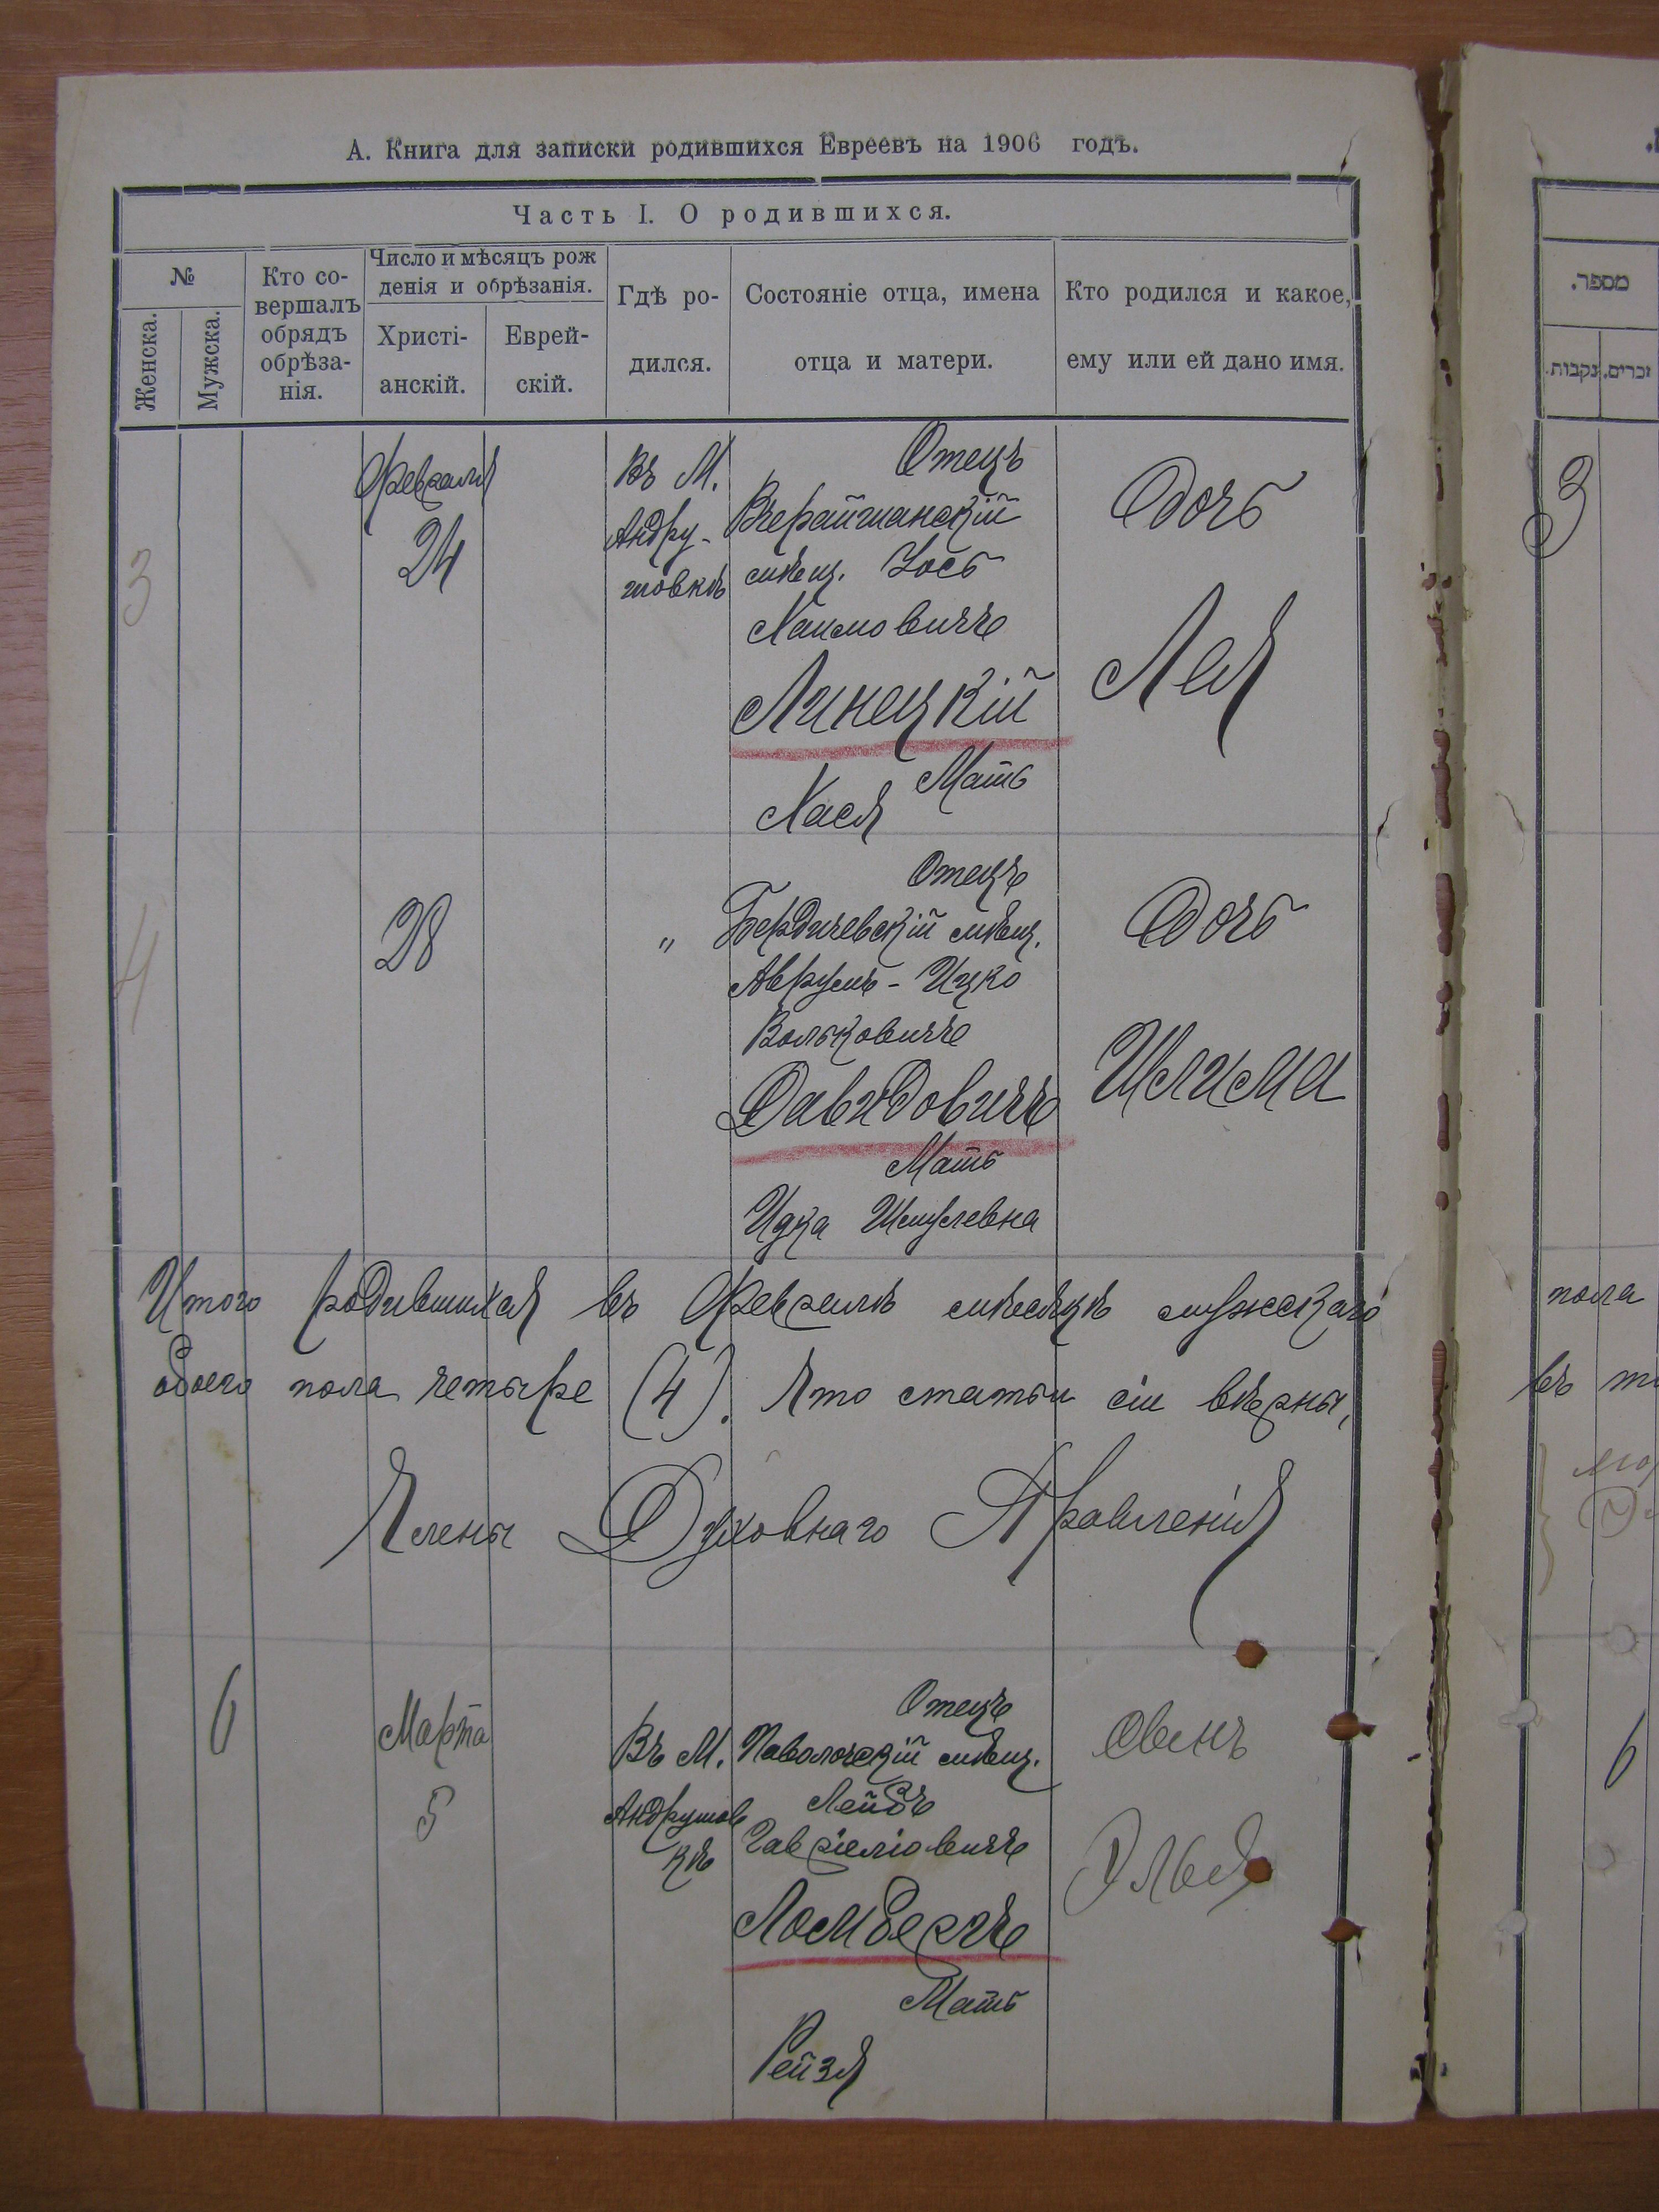 А. Книга для записки родившихся Евреевъ на 1906 годъ.
Часть I. О родившихся.
№
Женска.
Мужска.
Кто со-
вершалъ
обрядъ
обрѣза-
нія.
Число и мѣсяцъ рож
денія и обрѣзанія.
Христі-
анскій.
Еврей-
скій.
Гдѣ ро-
дился.
Состояніе отца, имена
отца и матери.
Кто родился и какое,
ему или ей дано имя.
3
Февраля
24
Въ М.
Андру-
шовкѣ
Отецъ
Вчерайшанскій
мѣщ. Іось
Хаимовичъ
Линецкій
Мать
Хася
Дочь
Лея
4
28
"
Отецъ
Бердичевскій мѣщ.
Аврумъ-Ицко
Вольковичъ
Давидовичъ
Мать
Идка Шмулевна
Дочь
Шлима
Итого родившихся въ Февралѣ мѣсяцѣ мужскаго
обоего пола четыре (4). Что статьи сіи вѣрны,
Члены Духовнаго Правленія
6
Марта
5
Въ М.
Андрушов
кѣ
Отецъ
Паволочскій мѣщ.
Лейбъ
Гавріеліовичъ
Ломбергъ
Мать
Рейзя
Сынъ
Элья
מספר.
נקבות.
זכרים.
3
пола
въ
6